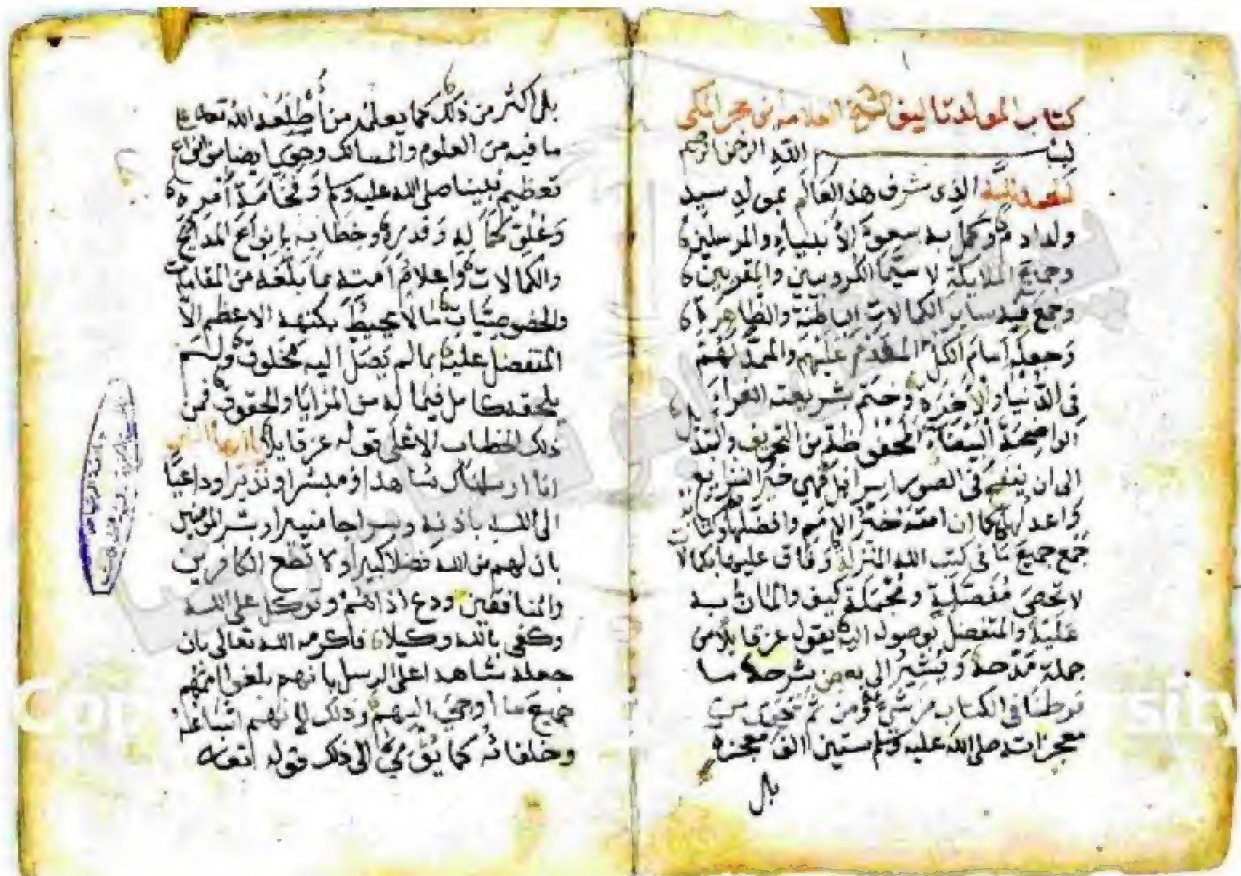 كتاب المولد تاليف الشيخ العلامة ابن حجر المكي
بسم الله الرحمن الرحيم
الحمد لله الذي شرف هذا العالم بمولد سيد
ولد ادم وكمل به سعود الانبياء والمرسلين
وجميع الملايكة لا سيما الكروبيين والمقربين
وجمع فيه ساير الكمالات الباطنة والظاهرة
وجعله امام الكل المقدم عليهم والممد لهم
في الدنيا والاخرة وختم شريعته الغرا
الواضحة البيضا المحفوظة من التحريف والتبدل
الى ان ينفخ في الصور اسرافيل فهي خير الشرايع
واعدلها كما ان امته خير الامم وافضلها
جمع جميع ما في كتب الله المنزلة وفاق عليها بكمالات
لا تحصى مفصلة ومجملة كيف والمان به
عليه والمتفضل بوصوله اليه يقول عز قايلا من
جملة مدحه ويشير الى بعض شرحه ما
فرطنا في الكتاب من شي ومن ثم تحقق من
معجزاته صلى الله عليه وسلم ستين الف معجزة
بل
بل اكثر من ذلك كما يعلمه من أطلعه الله تعالى على
ما فيه من العلوم والمسالك وحوى ايضا من انواع
تعظيم نبينا صلى الله عليه وسلم وفخامة أمره
وعلو كماله وقدره وخطابه بانواع المدايح
والكمالات واعلام امته بما بلغه من المقامات
والخصوصيات ما لا يحيط بكنهه الاعظم الا
المتفضل عليه بما لم يصل اليه مخلوق ولم
يلحقه كامل فيما له من المزايا والحقوق فمن
ذلك الخطاب الاعلى قوله عز قايلا يا ايها النبي
انا ارسلناك شاهدا ومبشرا ونذيرا وداعيا
الى الله باذنه وسراجا منيرا وبشر المومنين
بان لهم من الله فضلا كبيرا ولا تطع الكافرين
والمنافقين ودع اذاهم وتوكل على الله
وكفى بالله وكيلا فاكرمه الله تعالى بان
جعله شاهدا على الرسل بانهم بلغوا اممهم
جميع ما أوحي اليهم وذلك لانهم اتباعه
وخلفائه كما يومي الى ذلك قوله